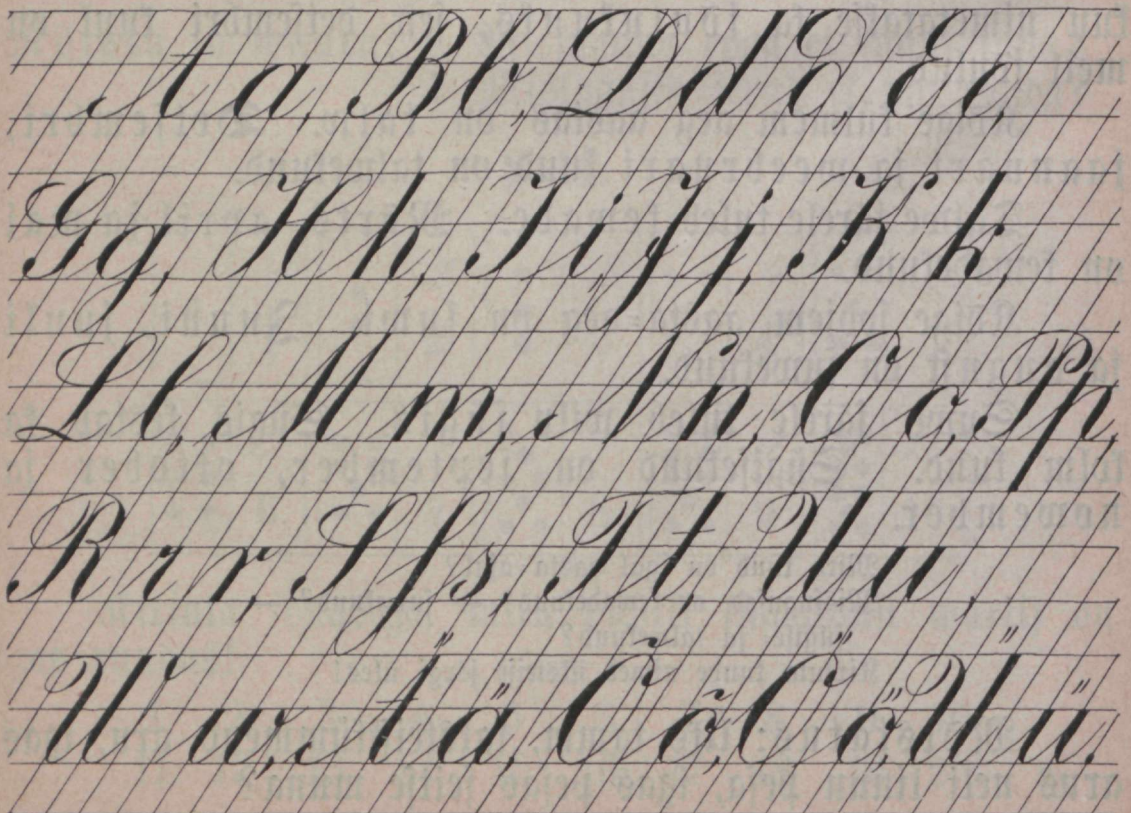 A a, B b, D d ∂, E e,
G g, H h, I i, J j, K k,
L l, M m, N n, O o, P p,
R r r, S ſ s, T t, U u,
W w, Ä ä, Õ õ, Ö ö, Ü ü.